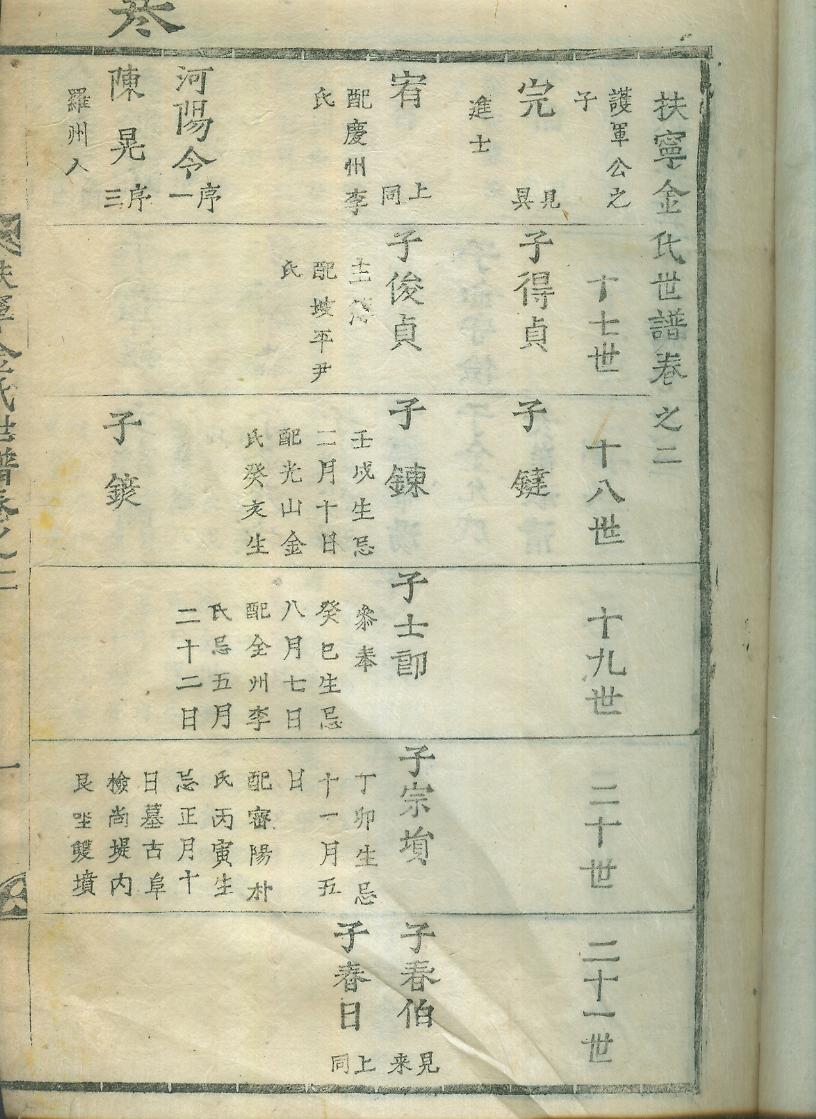 扶寧金氏世譜卷之二
護軍公之
子
完
見
㫷
進士
宥
上
同
配慶州李
氏
河陽令
序
一
陳晃
序
三
羅州人
十七世
子得貞
子俊貞
主簿
配坡平尹
氏
十八世
子
子鍊
壬戌生忌
二月十日
配光山金
氏癸亥生
子
十九世
子士卽
叅奉
癸巳生忌
八月七日
配全州李
氏忌五月
二十二日
二十世
子宗塤
丁卯生忌
十一月五
日
配密陽朴
氏丙寅生
忌正月十
日墓古阜
檢尚堤内
艮坐雙墳
二十一世
子春伯
見
来
子春日
上
同
扶寧金氏世譜卷之二
一